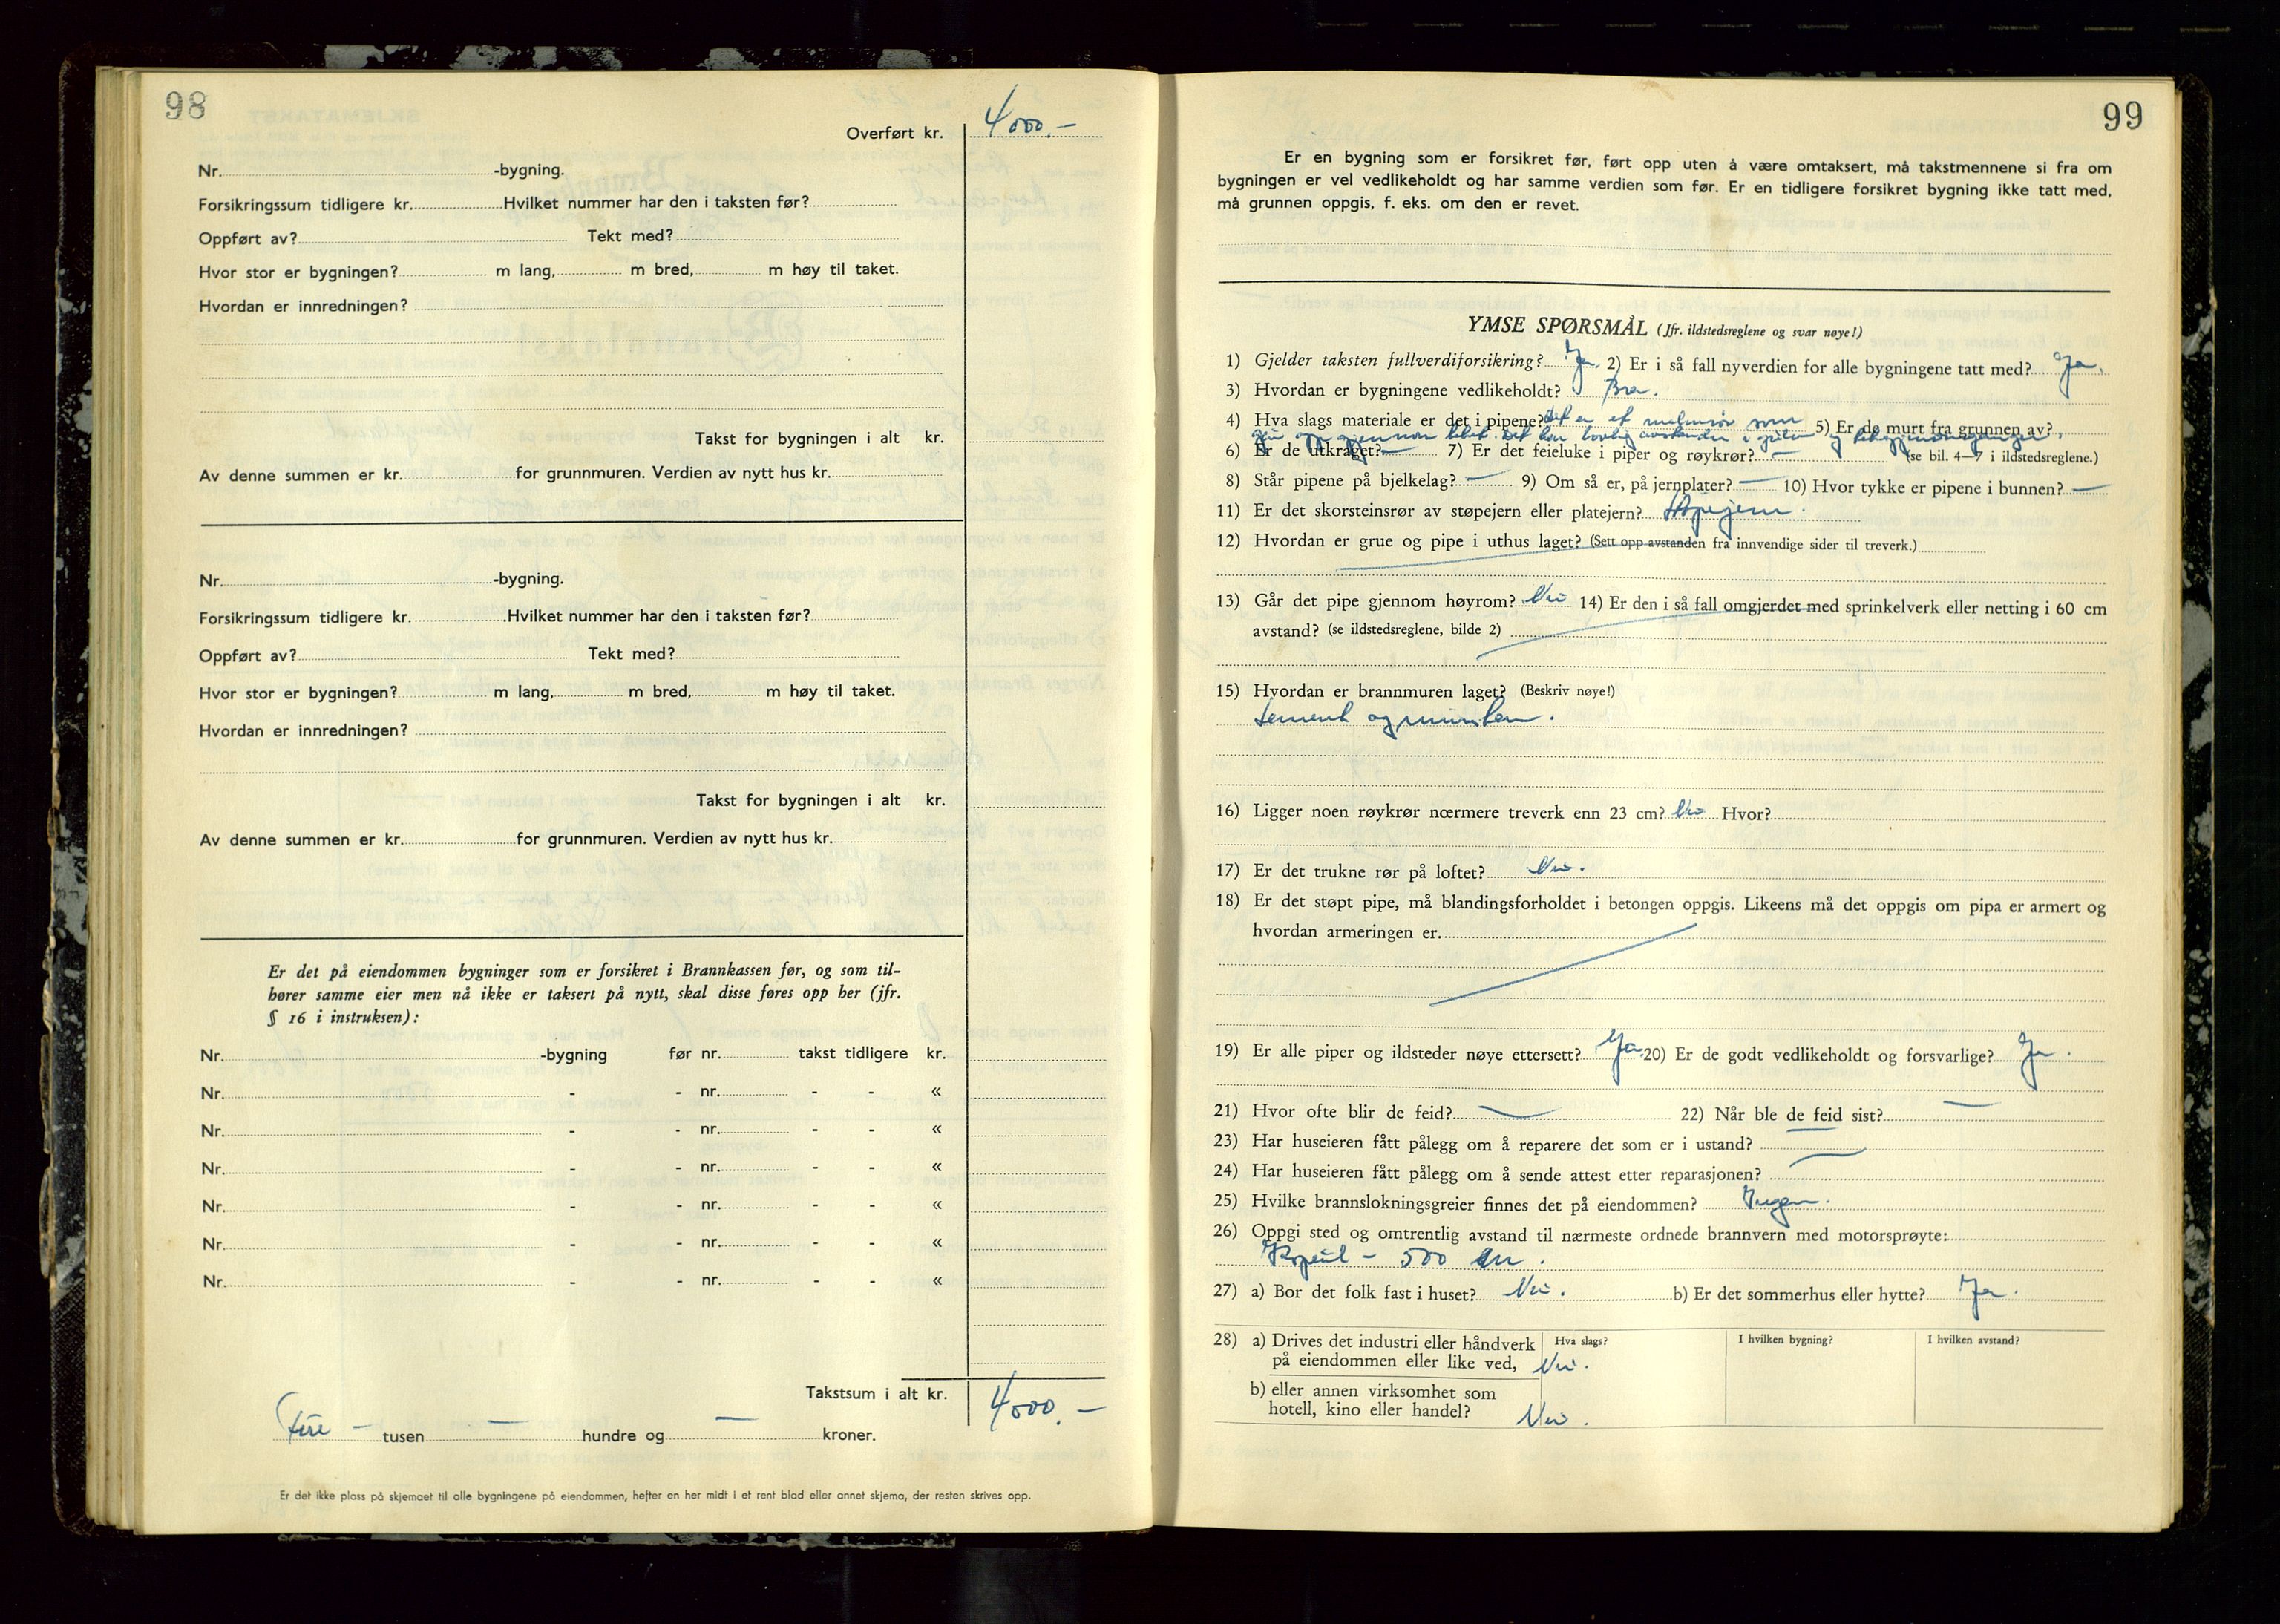 98
Overført kr. 4000.-
Nr. -bygning.
Forsikringssum tidligere kr. Hvilket nummer har den i taksten før?
Oppført av? Tekt med?
Hvor stor er bygningen? m lang, m bred, m høy til taket.
Hvordan er innredningen?
Takst for bygningen i alt kr.
Av denne summen er kr. for grunnmuren. Verdien av nytt hus kr.
Nr. -bygning.
Forsikringssum tidligere kr. Hvilket nummer har den i taksten før?
Oppført av? Tekt med?
Hvor stor er bygningen? m lang, m bred, m høy til taket.
Hvordan er innredningen?
Takst for bygningen i alt kr.
Av denne summen er kr. for grunnmuren. Verdien av nytt hus kr.
Er det på eiendommen bygninger som er forsikret i Brannkassen før, og som til-
hører samme eier men nå ikke er taksert på nytt, skal disse føres opp her (jfr.
§ 16 i instruksen):
Nr. -bygning før nr. takst tidligere kr.
Nr. - - nr. - - «
Nr. - - nr. - - «
Nr. - - nr. - - «
Nr. - - nr. - - «
Nr. - - nr. - - «
Nr. - - nr. - - «
Takstsum i alt kr. 4000.-
Fire - tusen — hundre og — kroner.
Er det ikke plass på skjemaet til alle bygningene på eiendommen, hefter en her midt i et rent blad eller annet skjema, der resten skrives opp.
99
Er en bygning som er forsikret før, ført opp uten å være omtaksert, må takstmennene si fra om
bygningen er vel vedlikeholdt og har samme verdien som før. Er en tidligere forsikret bygning ikke tatt med,
må grunnen oppgis, f. eks. om den er revet.
YMSE SPØRSMÅL (Jfr. ildstedsreglene og svar nøye!)
1) Gjelder taksten fullverdiforsikring? Ja. 2) Er i så fall nyverdien for alle bygningene tatt med? Ja.
3) Hvordan er bygningene vedlikeholdt? Bra.
4) Hva slags materiale er det i pipene? Det er et som 5) Er de murt fra grunnen av?
opp gjennom taket. Det har lovlig avstander i og
6) Er de utkraget? — 7) Er det feieluke i piper og røykrør? — (se bil. 4—7 i ildstedsreglene.)
8) Står pipene på bjelkelag? — 9) Om så er, på jernplater? — 10) Hvor tykke er pipene i bunnen? —
11) Er det skorsteinsrør av støpejern eller platejern? Støpejern.
12) Hvordan er grue og pipe i uthus laget? (Sett opp avstanden fra innvendige sider til treverk.)
13) Går det pipe gjennom høyrom? Nei 14) Er den i så fall omgjerdet med sprinkelverk eller netting i 60 cm
avstand? (se ildstedsreglene, bilde 2)
15) Hvordan er brannmuren laget? (Beskriv nøye!)
Sement og murstein.
16) Ligger noen røykrør nærmere treverk enn 23 cm? Nei Hvor?
17) Er det trukne rør på loftet? Nei.
18) Er det støpt pipe, må blandingsforholdet i betongen oppgis. Likeens må det oppgis om pipa er armert og
hvordan armeringen er.
19) Er alle piper og ildsteder nøye ettersett? Ja 20) Er de godt vedlikeholdt og forsvarlige? Ja.
21) Hvor ofte blir de feid? — 22) Når ble de feid sist? —
23) Har huseieren fått pålegg om å reparere det som er i ustand? —
24) Har huseieren fått pålegg om å sende attest etter reparasjonen? —
25) Hvilke brannslokningsgreier finnes det på eiendommen? Ingen.
26) Oppgi sted og omtrentlig avstand til nærmeste ordnede brannvern med motorsprøyte:
- 500 m.
27) a) Bor det folk fast i huset? Nei. b) Er det sommerhus eller hytte? Ja.
28) a) Drives det industri eller håndverk Hva slags? I hvilken bygning? I hvilken avstand?
på eiendommen eller like ved, Nei.
b) eller annen virksomhet som
hotell, kino eller handel? Nei.